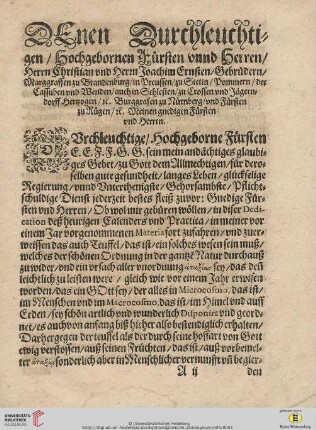 DEnen Durchleuchti-
gen / Hochgebornen Fürsten vnnd Herren /
Herrn Christian vnd Herrn Joachim Ernsten / Gebrüdern /
Marggraffen zu Brandenburg / in Preussen / zu Stetin / Pommern / der
Cassuben vnd Wenden / auch in Schlesien / zu Crossen vnd Jägern-
dorff Hertzogen / ꝛc. Burggrafen zu Nürnberg vnd Fürsten
zu Rügen / ꝛc. Meinen gnedigen Fürsten
vnd Herren.
DVrchleuchtige / Hochgeborne Fürsten
E. E. F. F. G. G. sein mein andächtiges glaubi-
ges Gebet / zu Gott dem Allmechtigen / für dero-
selben gute gesundtheit / langes Leben / glückselige
Regierung / vnnd Vnterthenigste / Gehorsambste / Pflicht-
schuldige Dienst jederzeit bestes fleiß zuvor: Gnedige Fürsten
vnd Herren / Ob wol mir gebüren wöllen / in diser Dedi-
cation deß heurigen Calenders vnd Practica / in meiner vor
einem Jar vorgenommenen Materia fort zufahren / vnd zuer-
weissen das auch Teuffel / das ist / ein solches wesen sein muß /
welches der schönen Ordnung in der gantzẽ Natur durchauß
zu wider / vnd ein vrsach aller vnordnung ἀταξίας sey / das deß
leichtlich zu leisten were / gleich wie vor einem Jahr erwisen
worden / das ein GOtt sey / der alles in Microcosmo, das ist /
im Menschen vnd im Macrocosmo, das ist / im Himel vnd auff
Erden / so schön artlich vnd wunderlich Disponirt vnd geord-
net / es auch von anfang biß hieher also bestendiglich erhalten /
Dar hergegen der teuffel als der durch seine hoffart von Gott
ewig verstossen / auß seinen Früchten / das ist / auß vorbemel-
ter ἀταξίᾳ sonderlich aber in Menschlicher vernunfft vñ begier-
A ij
den
UNIVERSITÄTS-
BIBLIOTHEK
HEIDELBERG
© Universitätsbibliothek Heidelberg
gefördert durch
Baden-Württemberg